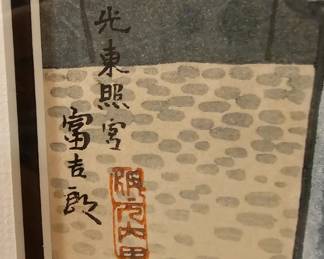 光東照宮
富吉郎